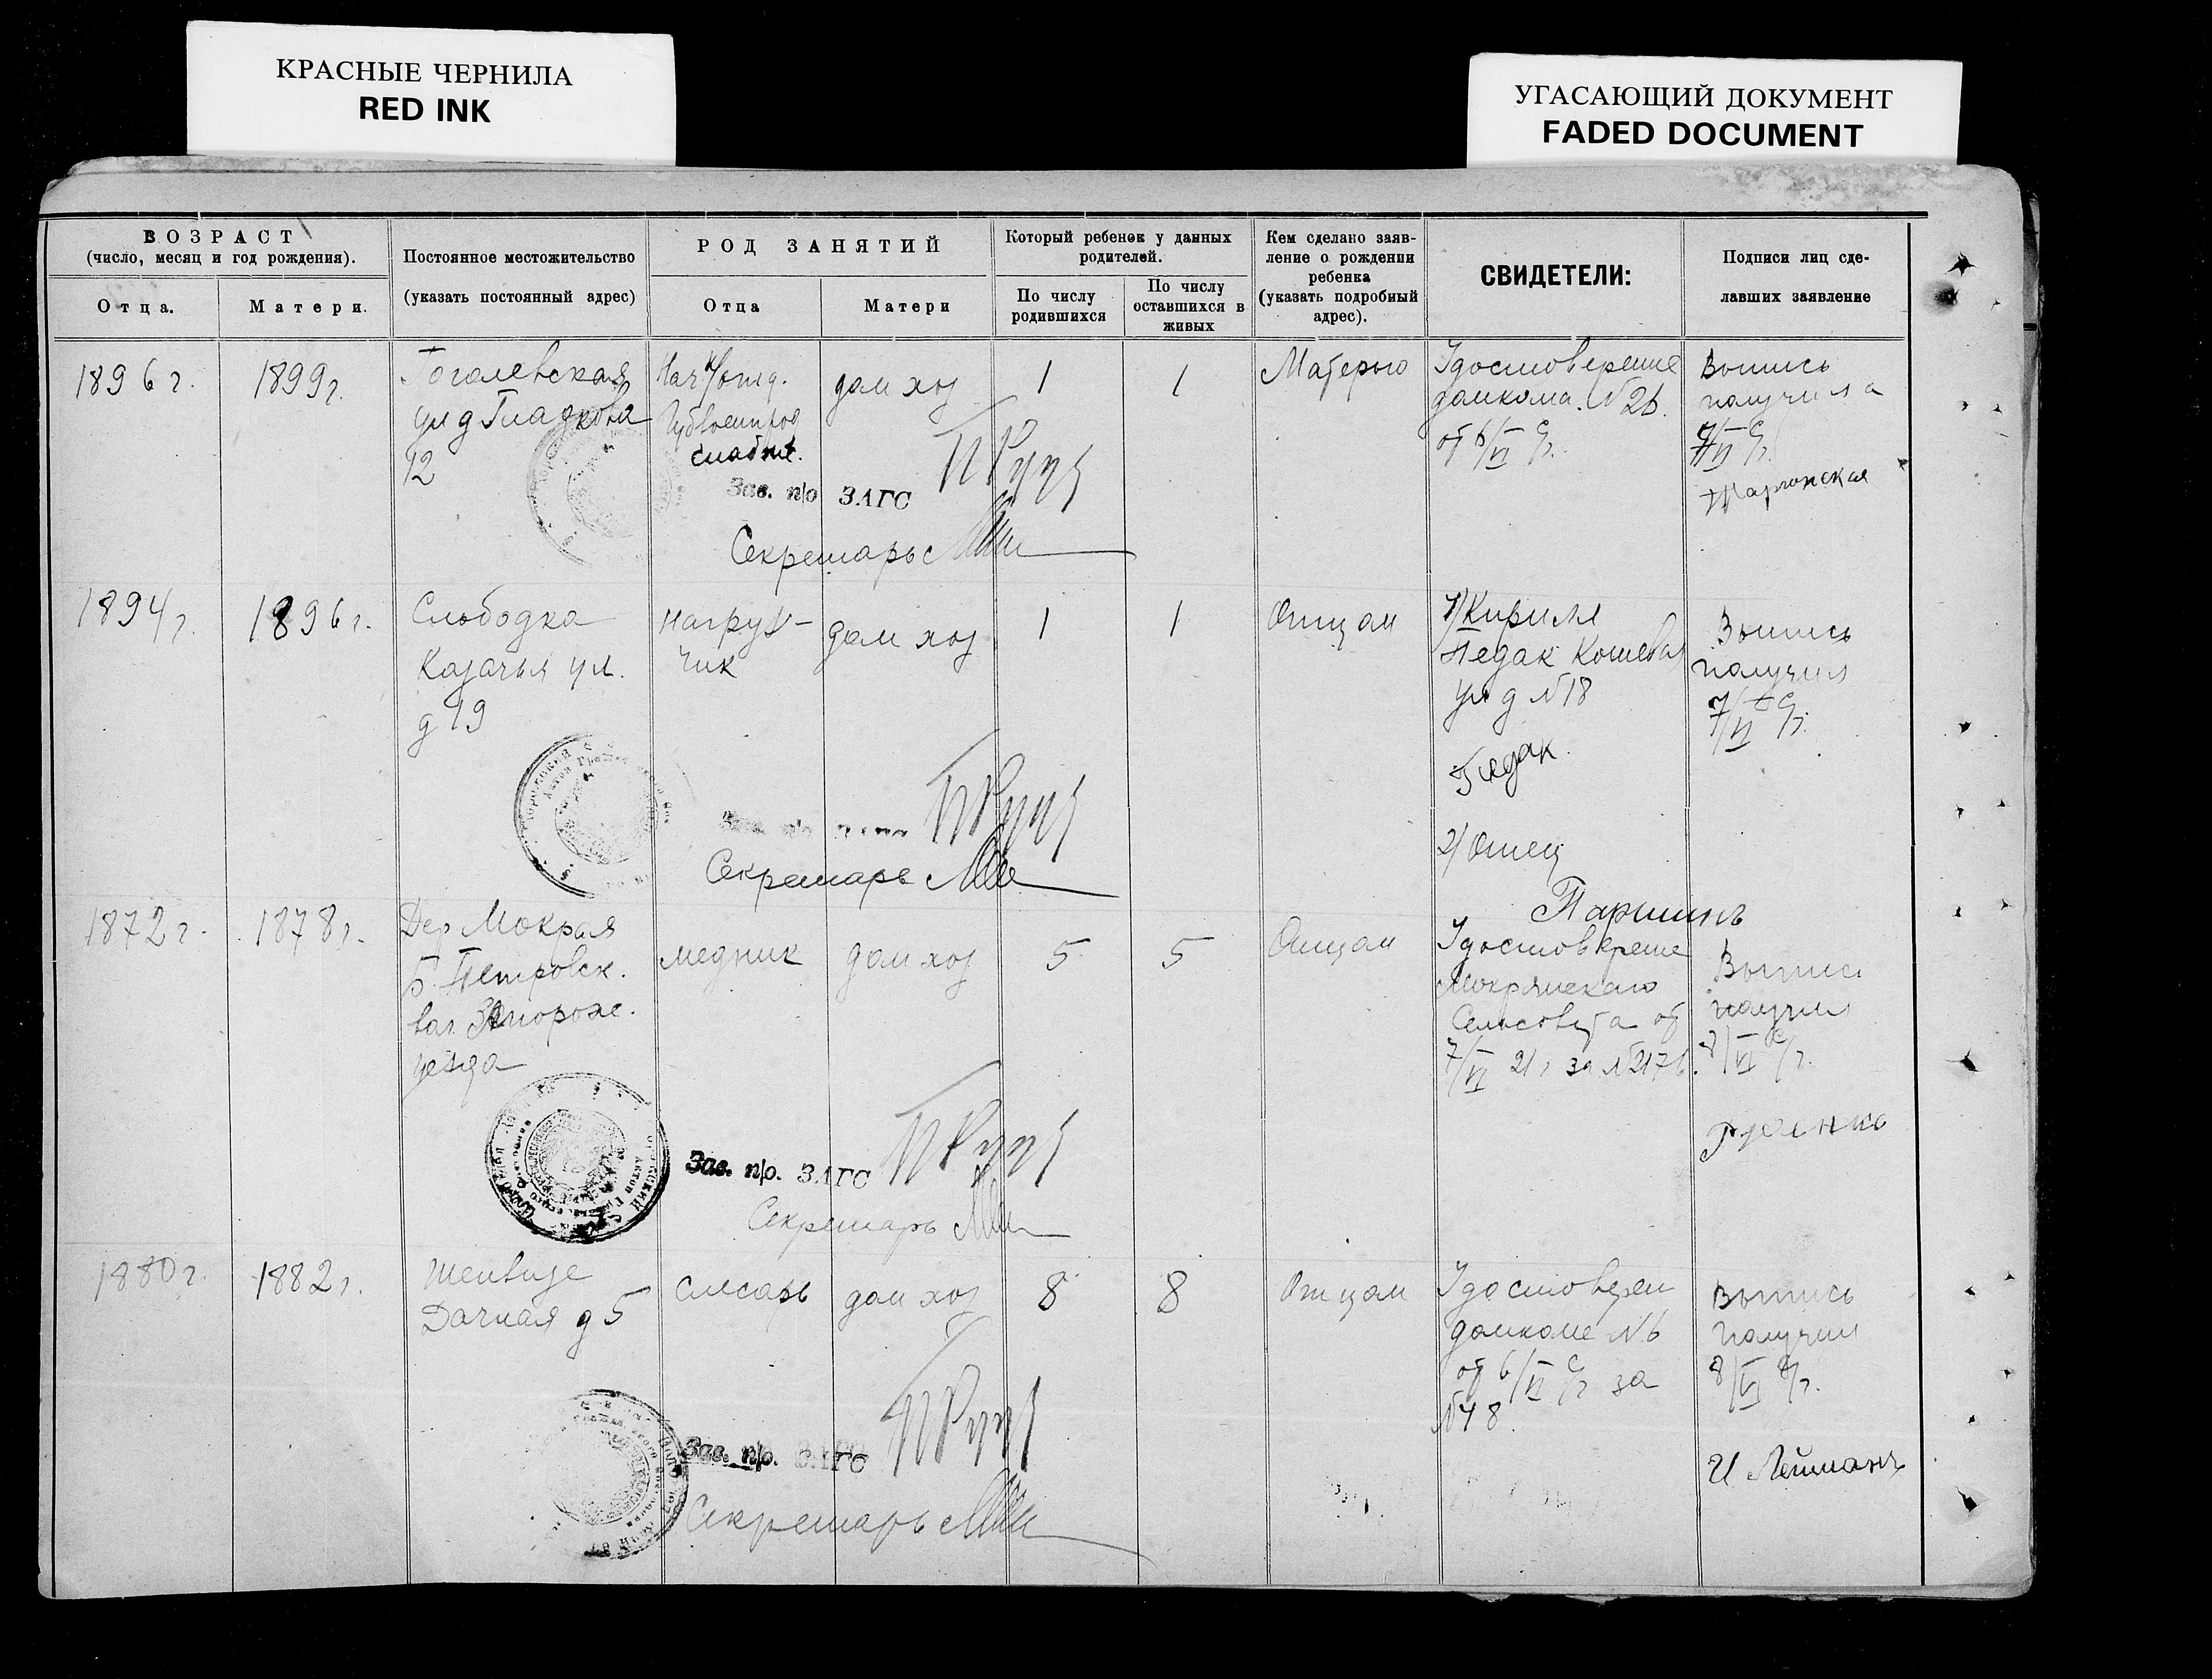 КРАСНЫЕ ЧЕРНИЛА
RED INK
УГАСАЮЩИЙ ДОКУМЕНТ
FADED DOCUMENT
ВОЗРАСТ
(число, месяц и год рождения).
Отца.
Матери.
Постоянное местожительство
(указать постоянный адрес)
РОД ЗАНЯТИЙ
Отца
Матери
Который ребенок у данных
родителей.
По числу
родившихся
По числу
оставшихся в
живых
Кем сделано заяв-
ление о рождении
ребенка
(указать подробный
адрес).
СВИДЕТЕЛИ:
Подписи лиц сде-
лавших заявление
1896 г.
1899 г.
Гоголевская
ул д Гладкова
12
дом хоз
1
1
Матерью
Удостоверение
домкома. № 26.
от 6/VI с/г.
Выпись
получила
7/VI с/г.
Зав. п/о ЗАГС
Секретарь
1894 г.
1896 г.
Слободка
Казачья ул.
д 19
нагруз-
чик
дом хоз
1
1
Отцом
1) Кирилл
Педак Кошевая
ул д № 18
Педак.
2) Отец
Паршинъ
Выпись
получил
7/VI с/г.
Зав. п/о
Секретарь
1872 г.
1878 г.
Дер Мокрая
Б. Петровск.
вол. Запорож.
уезда
медник
дом хоз
5
5
Отцом
Удостоверение
Мокрянского
Сельсовета от
7/VI 21 г за № 2176.
Выпись
получил
8/VI с/г.
Зав. п/о. ЗАГС
Секретарь
1880 г.
1882 г.
Шенвизе
Дачная д 5
слесарь
дом хоз
8
8
Отцом
Удостоверен
домкома № 6
от 6/VI с/г за
№ 48.
Выпись
получил
8/VI с/г.
И Лейшманъ
Зав. п/о. ЗАГС
Секретарь